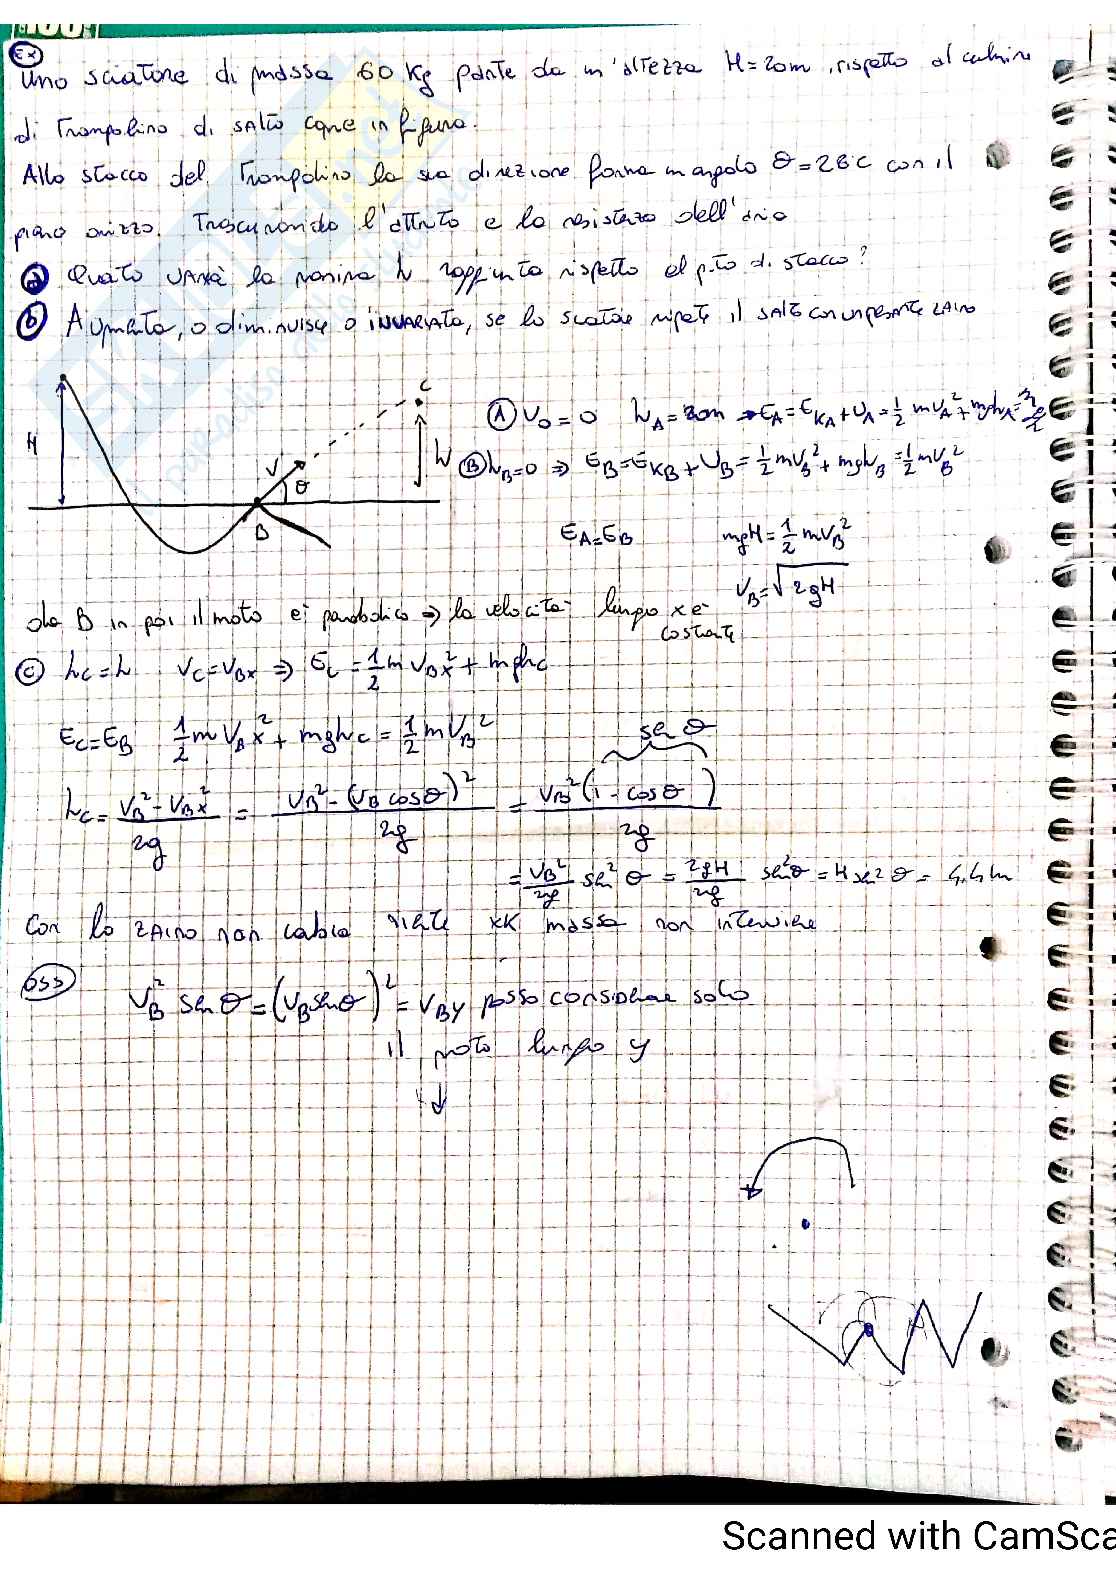 Ex
Uno sciatore di massa 60 Kg parte da un'altezza H=20m, rispetto al culmine
di Trampolino di salto come in figura.
Allo stacco del Trampolino la sua direzione forma un angolo θ=28°C con il
piano orizzo. Trascurando l'attrito e la resistenza dell'aria
a) Quato varrà la massima h raggiunta rispetto al p.to di stacco?
b) Aumenta, o diminuisce o INVARIATA, se lo sciatore ripete il salto con un pesante zaino
H
V
θ
B
C
h
A) V₀=0 hA=20m → EA=EKA+UA=1/2 mVA²+mghA=
B) hB=0 ⇒ EB=EKB+UB=1/2 mVB²+mghB=1/2 mVB²
EA=EB mgH=1/2 mVB²
VB=√2gH
da B in poi il moto e' parabolico ⇒ la velocità lungo x è
costante
C) hC=h VC=VBx ⇒ EC=1/2 m VBx²+mghC
EC=EB 1/2 m VBx²+mghC=1/2 mVB²
sen θ
hC=VB²-VBx²/2g = VB²-(VB cosθ)²/2g = VB²(1-cosθ)/2g
= VB²/2g sen²θ = 2gH/2g sen²θ = H sen²θ = 4,4m
Con lo zaino non cabia niete xk massa non interviene
oss
VB² sen θ=(VB senθ)²=VBy posso considerare solo
il moto lungo y
↓
Scanned with CamSca